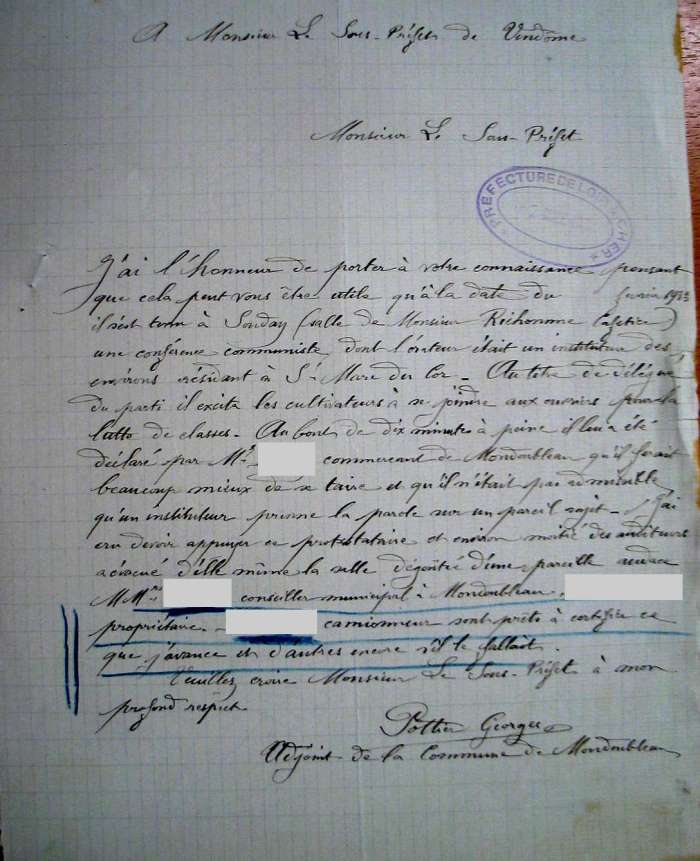 A Monsieur Le Sous-Préfet de Vendôme
Monsieur Le Sous-Préfet
PREFECTURE DE LOIR-ET-CHER
J'ai l'honneur de porter à votre connaissance pensant
que cela peut vous être utile qu'à la date du février 1933
il s'est tenu à Souday (salle de Monsieur Richomme Cafetier)
une conférence communiste dont l'orateur était un instituteur des
environs résidant à St Marc du Cor - Au titre de délégué
du parti il excita les cultivateurs à se joindre aux ouvriers pour la
lutte de classes - Au bout de dix minutes à peine il lui a été
déclaré par Mr commerçant de Mondoubleau qu'il ferait
beaucoup mieux de se taire et qu'il n'était pas admissible
qu'un instituteur prenne la parole sur un pareil sujet - J'ai
cru devoir appuyer ce protestataire et environ moitié des auditeurs
a évacué d'elle même la salle dégoûtée d'une pareille audace
MMrs conseiller municipal à Mondoubleau.
propriétaire - camionneur sont prêts à certifier ce
que j'avance et d'autres encore s'il le fallait.
Veuillez croire Monsieur Le Sous-Préfet à mon
profond respect
Pottier Georges
Adjoint de la Commune de Mondoubleau